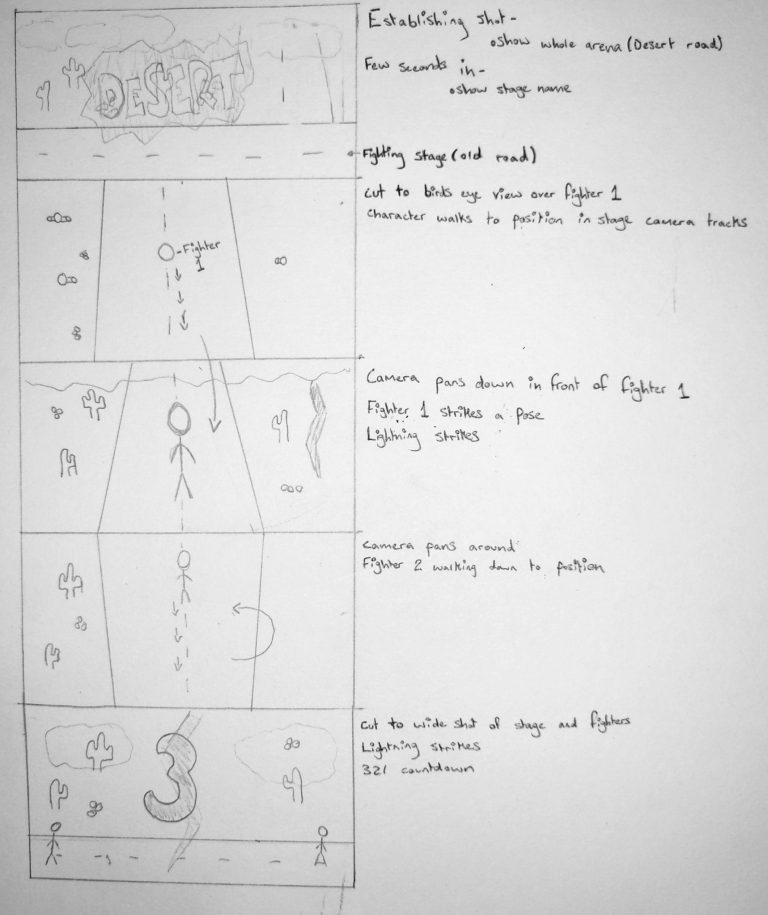 Establishing shot-
•show whole arena (Desert road)
Few seconds in-
•show stage name
DESERT
Fighting stage (old road)
cut to birds eye view over fighter 1
Character walks to position in stage camera tracks
-Fighter
1
Camera pans down in front of fighter 1
Fighter 1 strikes a pose
Lightning strikes
Camera pans around
Fighter 2 walking down to position
cut to wide shot of stage and fighters
Lightning strikes
321 countdown
3